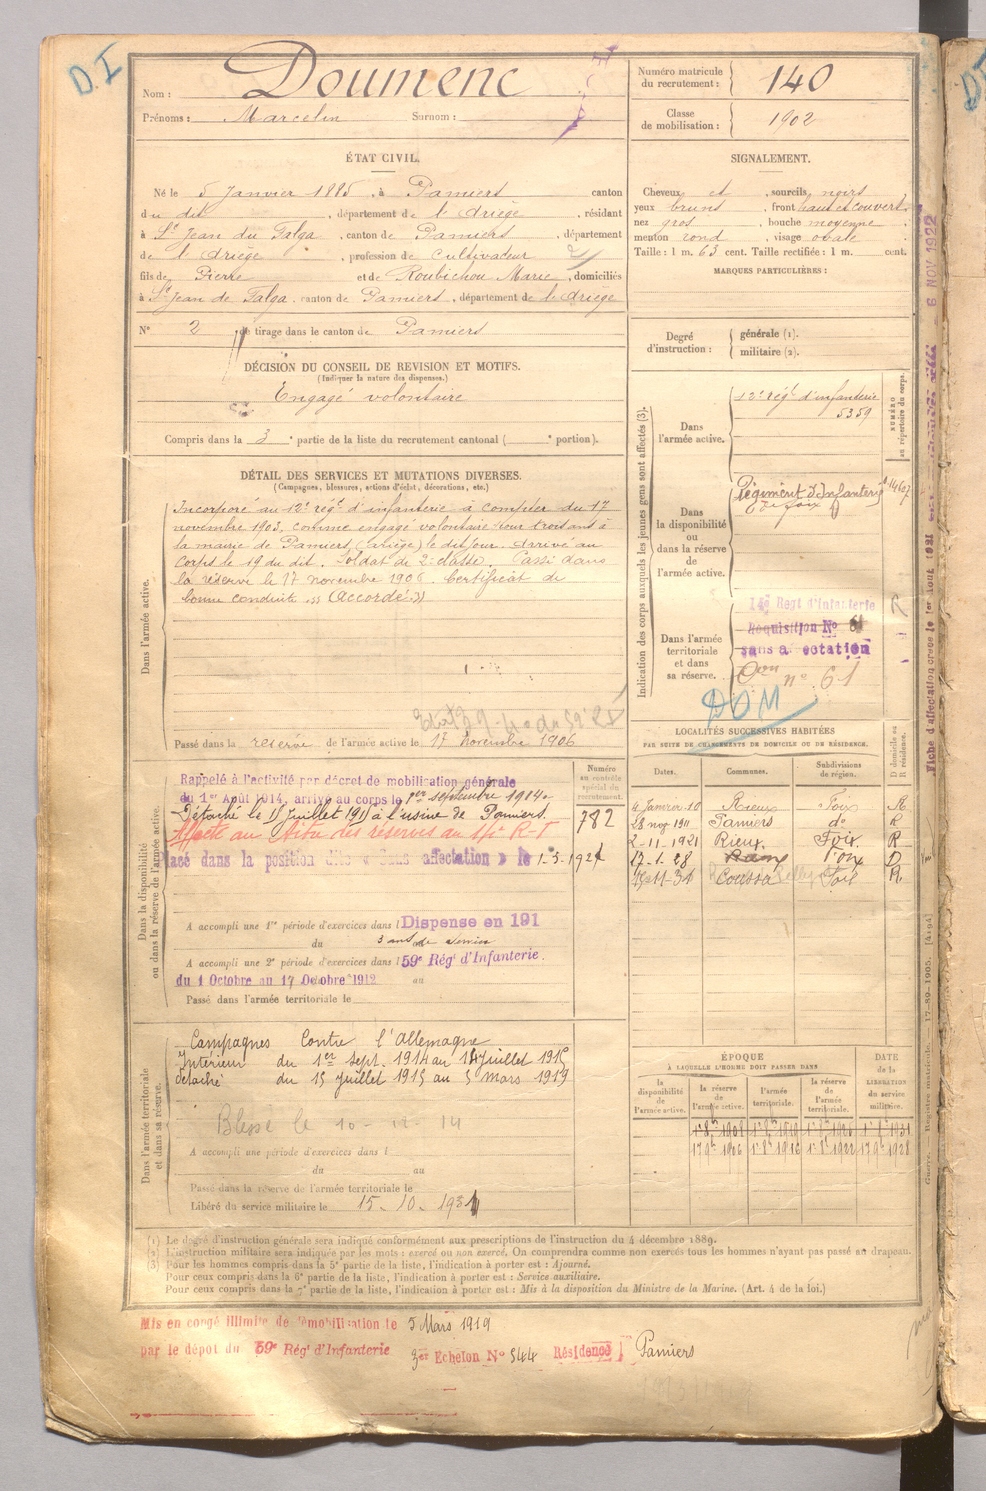 D.I
Nom : Doumenc
Prénoms : Marcelin Surnom :
Numéro matricule du recrutement : 140
Classe de mobilisation : 1902
ÉTAT CIVIL.
Né le 5 Janvier 1885, à Pamiers canton
du dit, département de l'Ariège, résidant
à St Jean du Falga, canton de Pamiers, département
de l'Ariège, profession de Cultivateur
fils de Pierre et de Roubichou Marie, domiciliés
à St Jean de Falga, canton de Pamiers, département de l'Ariège
N° 2 de tirage dans le canton de Pamiers
SIGNALEMENT.
Cheveux et sourcils noirs
yeux bruns, front haut et couvert
nez gros, bouche moyenne
menton rond, visage ovale
Taille : 1 m. 63 cent. Taille rectifiée : 1 m. cent.
MARQUES PARTICULIÈRES :
Degré d'instruction : générale (1). militaire (2).
DÉCISION DU CONSEIL DE REVISION ET MOTIFS.
(Indiquer la nature des dispenses.)
Engagé volontaire
Compris dans la 3e partie de la liste du recrutement cantonal ( e portion).
DÉTAIL DES SERVICES ET MUTATIONS DIVERSES.
(Campagnes, blessures, actions d'éclat, décorations, etc.)
Dans l'armée active.
Incorporé au 12e régt d'infanterie à compter du 17
novembre 1903, comme engagé volontaire pour trois ans à
la mairie de Pamiers (Ariège) le dit jour. Arrivé au
corps le 19 du dit. Soldat de 2e classe. Passé dans
la réserve le 17 novembre 1906. Certificat de
bonne conduite "accordé"
Passé dans la réserve de l'armée active le 17 novembre 1906
Indication des corps auxquels les jeunes gens sont affectés (3).
NUMÉRO au répertoire du corps.
Dans l'armée active.
12e régt d'infanterie
5359
Dans la disponibilité ou dans la réserve de l'armée active.
Régiment d'Infanterie
de Foix
Dans l'armée territoriale et dans sa réserve.
14e Regt d'Infanterie
Réquisition No 61
sans affectation
n° 61
DOM
Dans la disponibilité ou dans la réserve de l'armée active.
Numéro au contrôle spécial du recrutement.
782
Rappelé à l'activité par décret de mobilisation générale
du 1er Août 1914, arrivé au corps le 1er septembre 1914.
Détaché le 15 juillet 1915 à l'usine de Pamiers.
Placé dans la position dite « Sans affectation » le 1-5-1927
A accompli une 1re période d'exercices dans l Dispense en 191
du 3 ans de service
A accompli une 2e période d'exercices dans l 59e Régt d'Infanterie.
du 1 Octobre au 17 Octobre 1912 au
Passé dans l'armée territoriale le
LOCALITÉS SUCCESSIVES HABITÉES
PAR SUITE DE CHANGEMENTS DE DOMICILE OU DE RÉSIDENCE.
Dates. Communes. Subdivisions de région. D domicile ou R résidence.
4 Janvier 10 Rieux Foix R
28 nov 1911 Pamiers do R
2-11-1921 Rieux Foix R
17-1-28 Foix D
Coussa Foix R
Dans l'armée territoriale et dans sa réserve.
Campagnes Contre l'Allemagne
Intérieur du 1er Sept. 1914 au 14 Juillet 1915
détaché du 15 juillet 1915 au 5 mars 1919
Blessé le 10-12-14
A accompli une période d'exercices dans l
du au
Passé dans la réserve de l'armée territoriale le
Libéré du service militaire le 15-10-1931
ÉPOQUE
À LAQUELLE L'HOMME DOIT PASSER DANS
la disponibilité de l'armée active. la réserve de l'armée active. l'armée territoriale. la réserve de l'armée territoriale.
DATE de la LIBÉRATION du service militaire.
(1) Le degré d'instruction générale sera indiqué conformément aux prescriptions de l'instruction du 4 décembre 1889.
(2) L'instruction militaire sera indiquée par les mots : exercé ou non exercé. On comprendra comme non exercés tous les hommes n'ayant pas passé au drapeau.
(3) Pour les hommes compris dans la 5e partie de la liste, l'indication à porter est : Ajourné.
Pour ceux compris dans la 6e partie de la liste, l'indication à porter est : Service auxiliaire.
Pour ceux compris dans la 7e partie de la liste, l'indication à porter est : Mis à la disposition du Ministre de la Marine. (Art. 4 de la loi.)
Mis en congé illimité de démobilisation le 5 Mars 1919
par le dépôt du 59e Régt d'Infanterie 3er Echelon No 544 Résidence Pamiers
6 NOV 1922